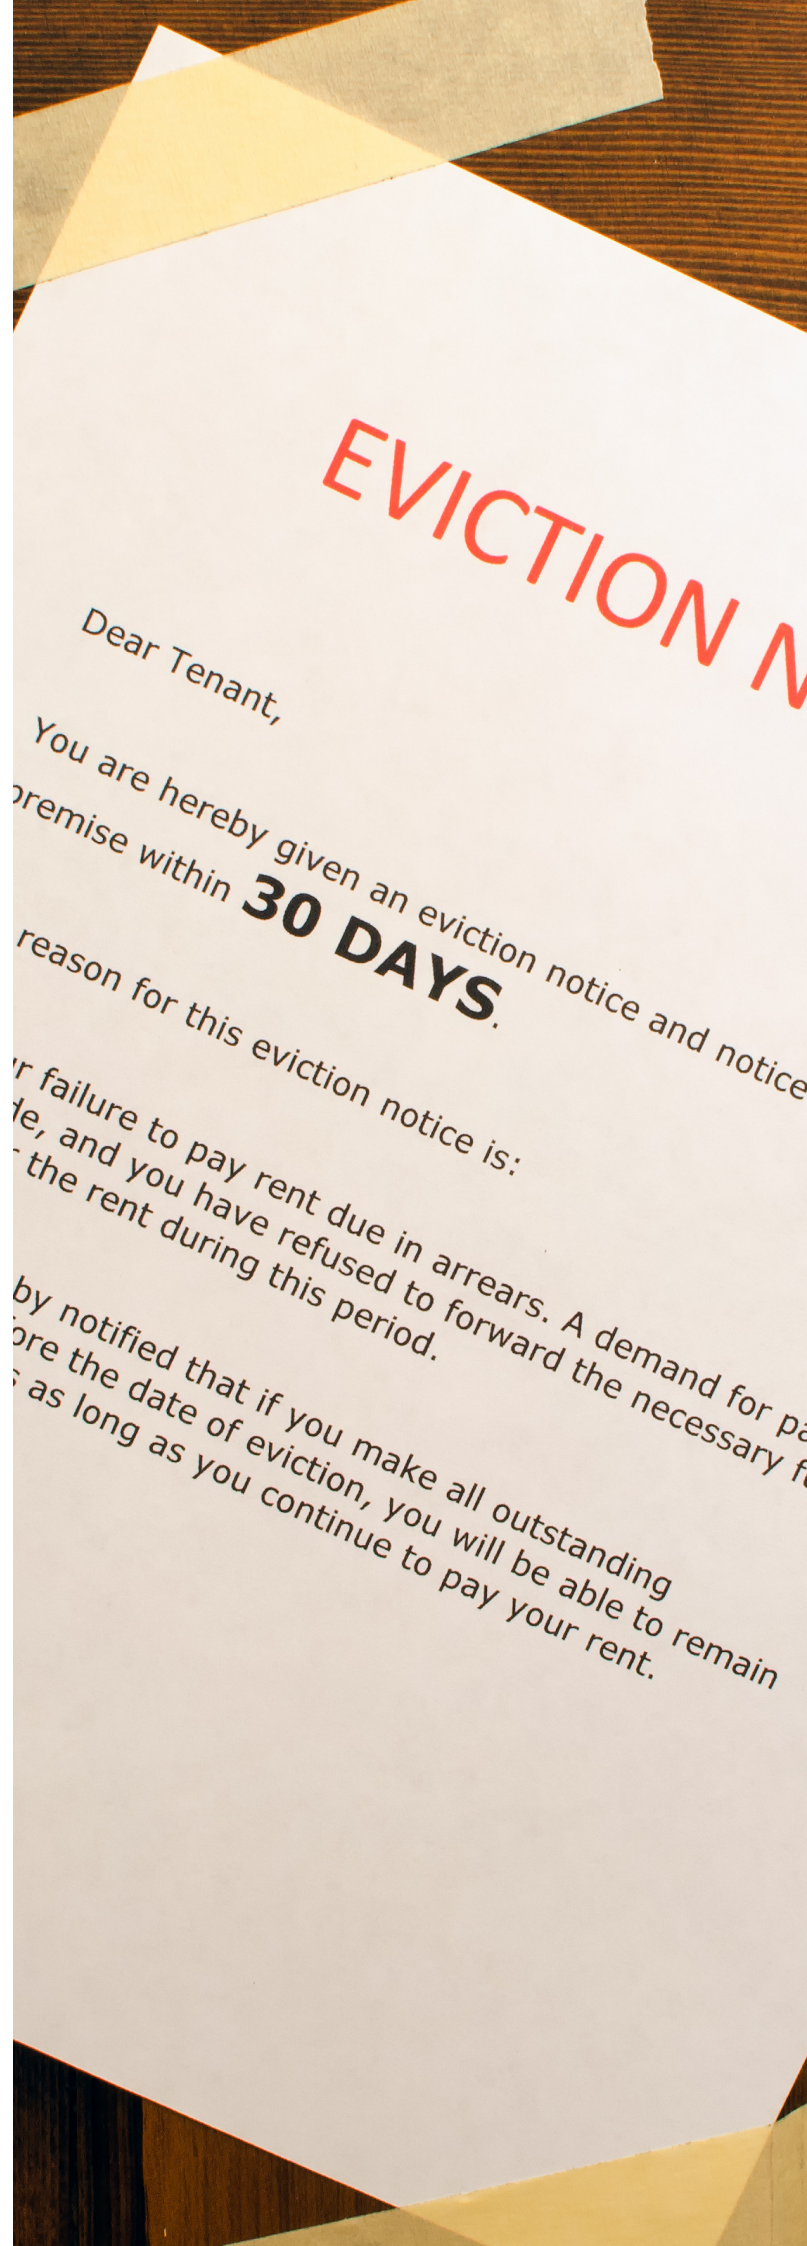 EVICTION N
Dear Tenant,
You are hereby given an eviction notice and notice
premise within 30 DAYS.
reason for this eviction notice is:
failure to pay rent due in arrears. A demand for
and you have refused to forward the necessary
the rent during this period.
by notified that if you make all outstanding
the date of eviction, you will be able to remain
as long as you continue to pay your rent.